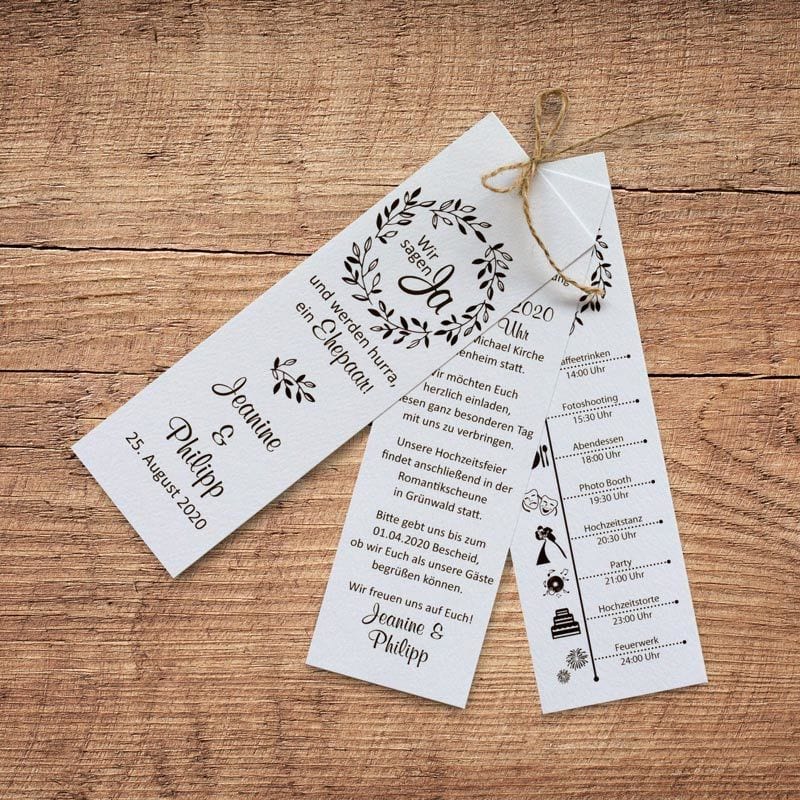 Wir
sagen
Ja
und werden hurra,
ein Ehepaar!
Jeanine
&
Philipp
25. August 2020
2020
Uhr
Michael Kirche
statt.
möchten Euch
herzlich einladen,
ganz besonderen Tag
mit uns zu verbringen.
Unsere Hochzeitsfeier
findet anschließend in der
Romantikscheune
in Grünwald statt.
Bitte gebt uns bis zum
01.04.2020 Bescheid,
ob wir Euch als unsere Gäste
begrüßen können.
Wir freuen uns auf Euch!
Jeanine &
Philipp
affeetrinken
14:00 Uhr
Fotoshooting
15:30 Uhr
Abendessen
18:00 Uhr
Photo Booth
19:30 Uhr
Hochzeitstanz
20:30 Uhr
Party
21:00 Uhr
Hochzeitstorte
23:00 Uhr
Feuerwerk
24:00 Uhr